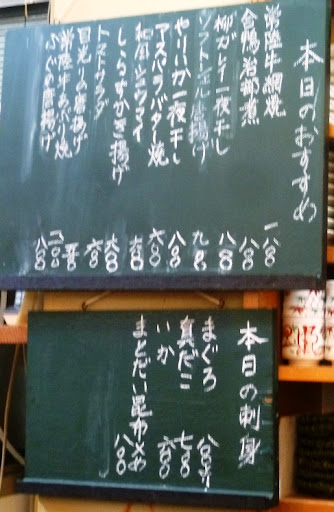 本日のおすすめ
常陸牛網焼 一八〇〇
合鴨治部煮 八〇〇
柳ガレイ一夜干し 八〇〇
ソフトシェル唐揚げ 九〇〇
やりいか一夜干し 八〇〇
アスパラバター焼 六〇〇
和風シュウマイ 六〇〇
しらすかき揚げ 六〇〇
トマトサラダ 六〇〇
目光りの唐揚げ
常陸牛あぶり焼
ふぐの唐揚げ 八〇〇
本日の刺身
まぐろ 八〇〇より
真だこ 七〇〇
いか 六〇〇
まとだい昆布〆め 八〇〇